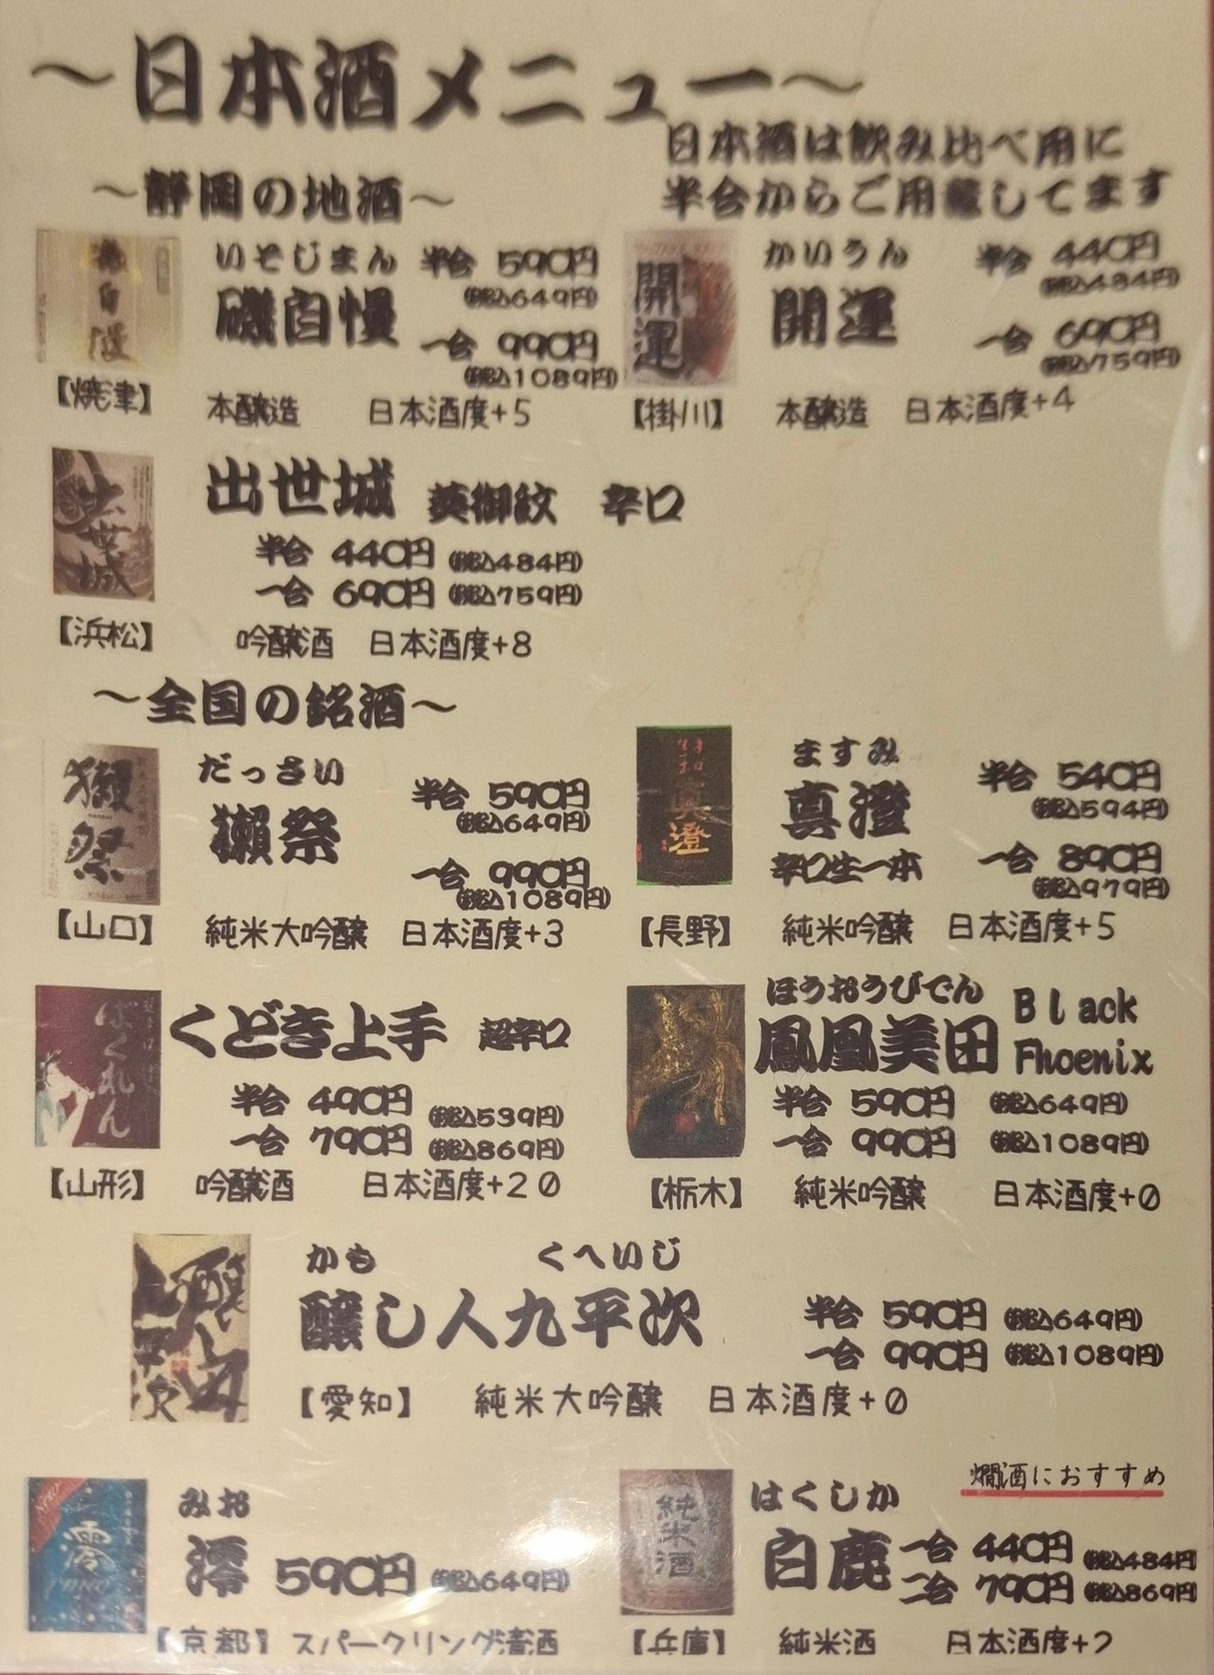 ～日本酒メニュー～
日本酒は飲み比べ用に
半合からご用意してます
～静岡の地酒～
いそじまん
磯自慢
半合 590円
(税込649円)
一合 990円
(税込1089円)
【焼津】 本醸造 日本酒度+5
開運
かいうん
開運
半合 440円
(税込484円)
一合 690円
(税込759円)
【掛川】 本醸造 日本酒度+4
出世城
出世城 葵御紋 辛口
半合 440円 (税込484円)
一合 690円 (税込759円)
【浜松】 吟醸酒 日本酒度+8
～全国の銘酒～
獺祭
だっさい
獺祭
半合 590円
(税込649円)
一合 990円
(税込1089円)
【山口】 純米大吟醸 日本酒度+3
辛口
生一本
真澄
ますみ
真澄
辛口生一本
半合 540円
(税込594円)
一合 890円
(税込979円)
【長野】 純米吟醸 日本酒度+5
ばくれん
くどき上手 超辛口
半合 490円 (税込539円)
一合 790円 (税込869円)
【山形】 吟醸酒 日本酒度+20
ほうおうびでん
鳳凰美田 Black
Fhoenix
半合 590円 (税込649円)
一合 990円 (税込1089円)
【栃木】 純米吟醸 日本酒度+0
かも くへいじ
醸し人九平次
半合 590円 (税込649円)
一合 990円 (税込1089円)
【愛知】 純米大吟醸 日本酒度+0
澪
みお
澪 590円 (税込649円)
【京都】 スパークリング清酒
燗酒におすすめ
純米酒
はくしか
白鹿
一合 440円 (税込484円)
二合 790円 (税込869円)
【兵庫】 純米酒 日本酒度+2